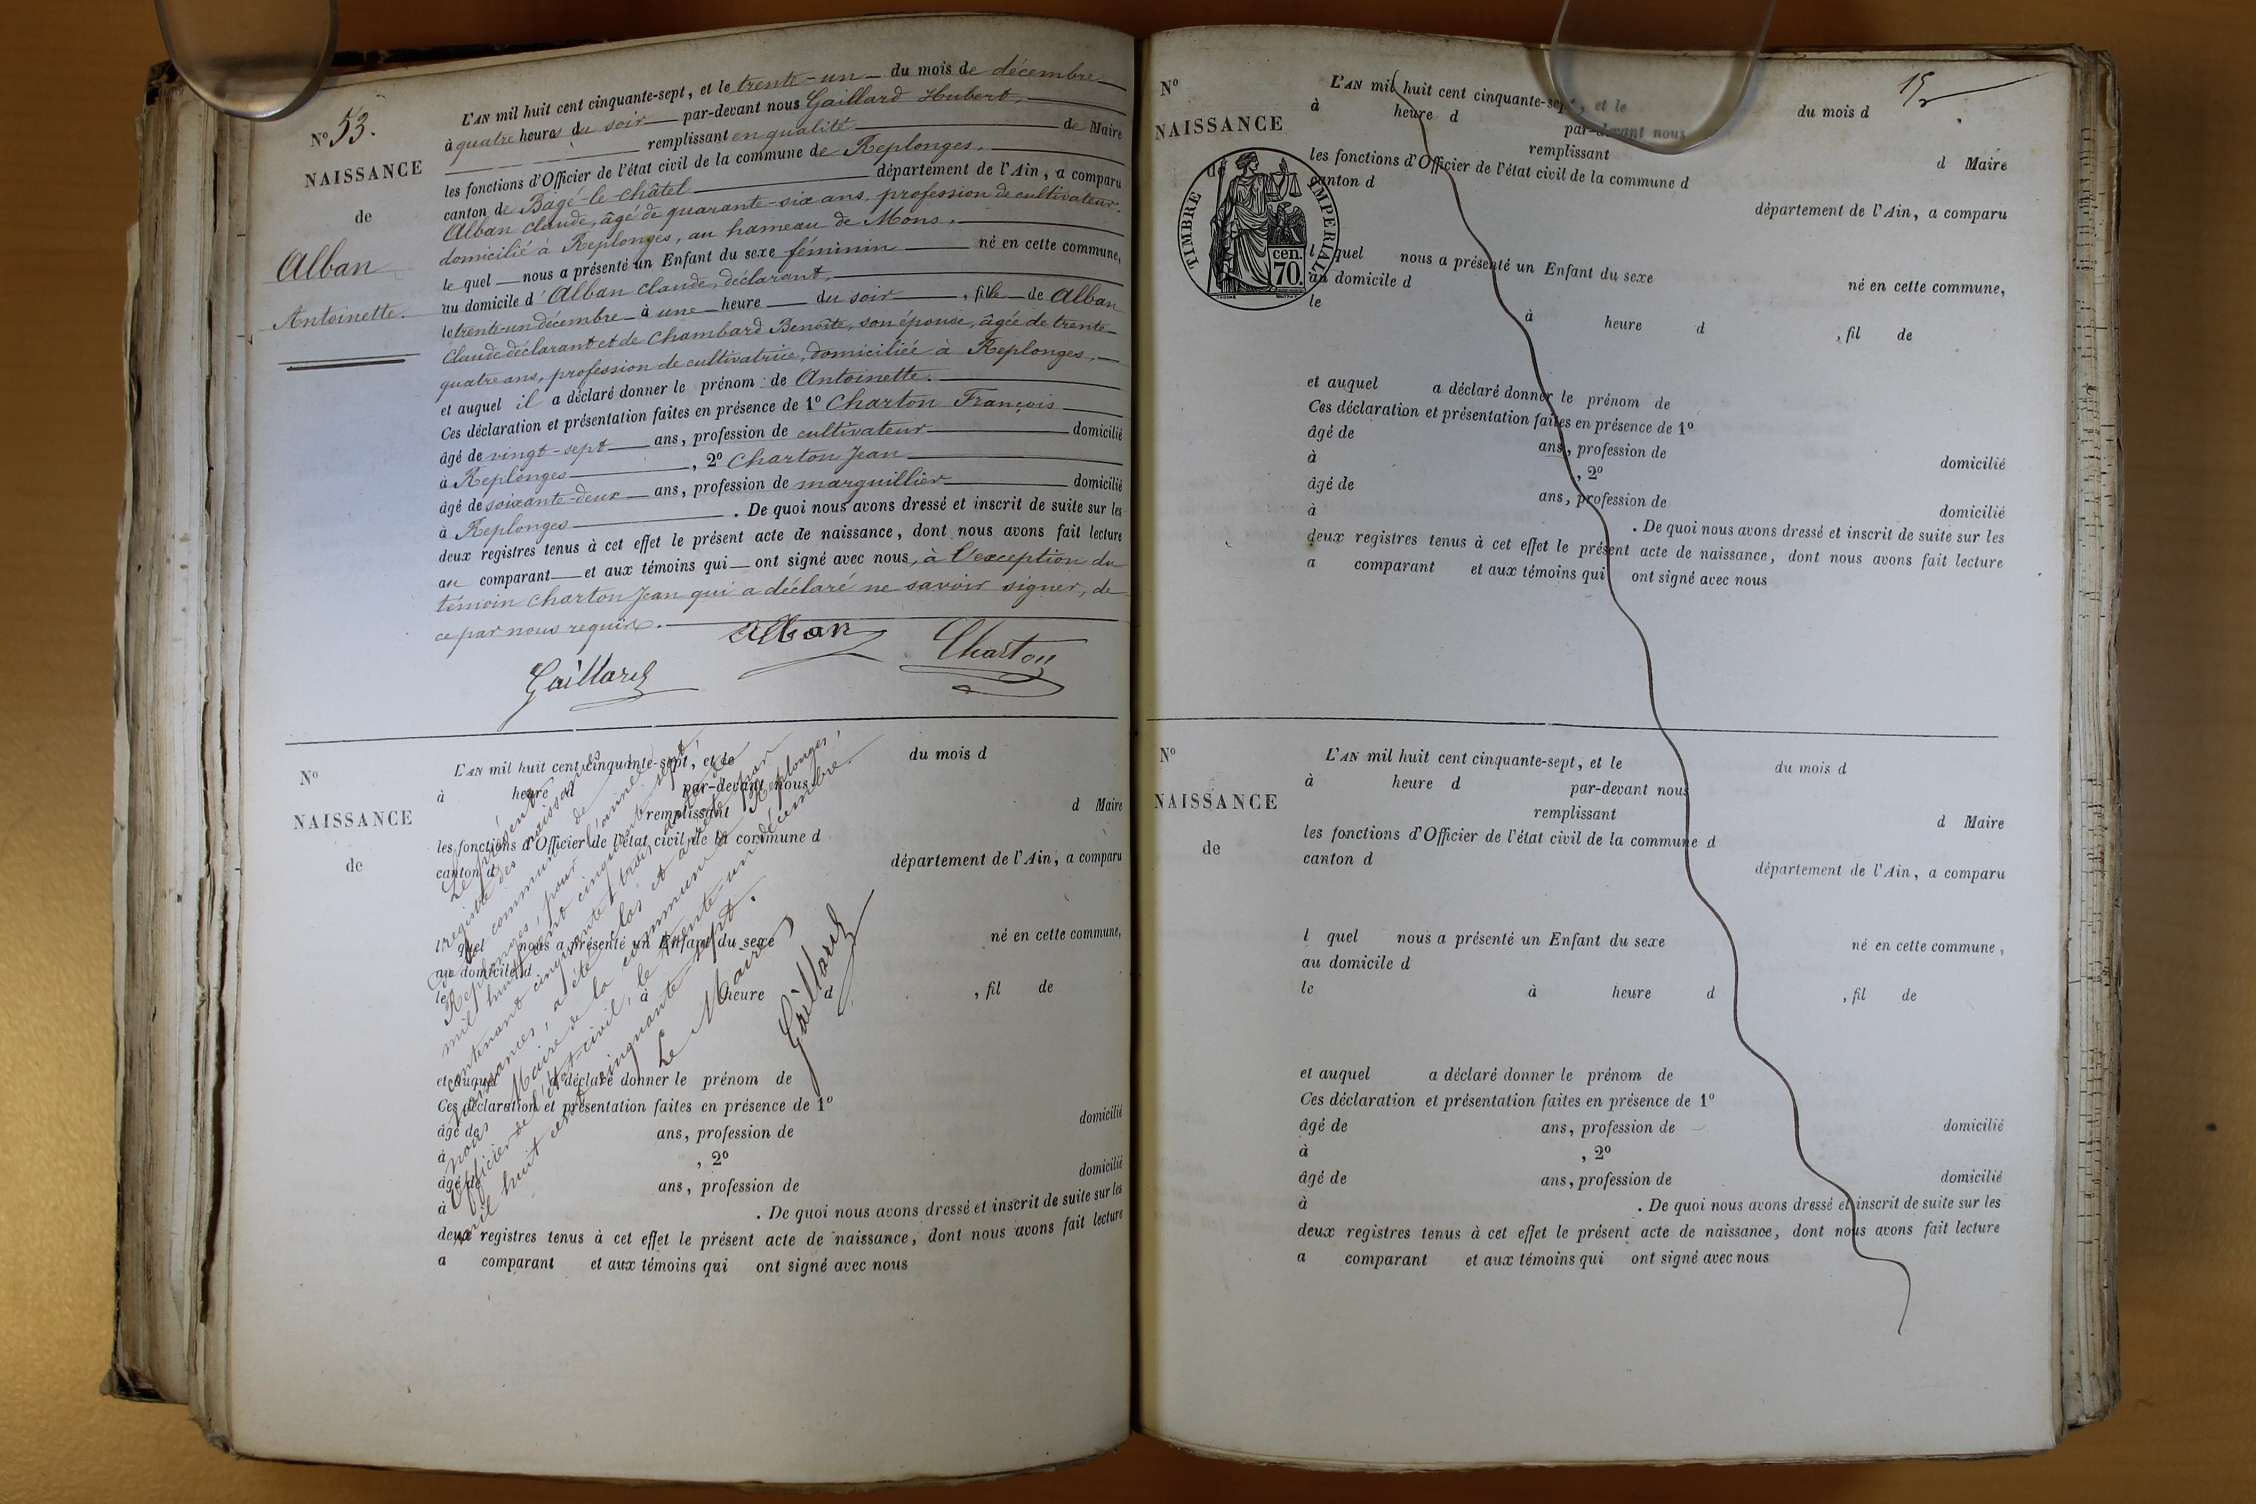 N° 53.
NAISSANCE
de
Alban
Antoinette.
L'AN mil huit cent cinquante-sept, et le trente-un du mois de décembre
à quatre heures du soir par-devant nous Gaillard Hubert,
remplissant en qualité de Maire
les fonctions d'Officier de l'état civil de la commune de Replonges.
canton de Bagé-le-châtel département de l'Ain, a comparu
Alban claude, âgé de quarante-six ans, profession de cultivateur,
domicilié à Replonges, au hameau de Mons,
le quel nous a présenté un Enfant du sexe féminin né en cette commune,
au domicile d'Alban claude, déclarant,
le trente-un décembre à une heure du soir, fille de Alban
Claude déclarant et de Chambard Benoîte, son épouse, âgée de trente-
quatre ans, profession de cultivatrice, domiciliée à Replonges,
et auquel il a déclaré donner le prénom de Antoinette.
Ces déclaration et présentation faites en présence de 1° Charton François
âgé de vingt-sept ans, profession de cultivateur domicilié
à Replonges, 2° Charton Jean
âgé de soixante-deux ans, profession de marguillier domicilié
à Replonges. De quoi nous avons dressé et inscrit de suite sur les
deux registres tenus à cet effet le présent acte de naissance, dont nous avons fait lecture
au comparant et aux témoins qui ont signé avec nous, à l'exception du
témoin Charton Jean qui a déclaré ne savoir signer, de
ce par nous requis.
Alban
Charton
Gaillard
N°
NAISSANCE
de
L'AN mil huit cent cinquante-sept, et le du mois d
à heure d par-devant nous
remplissant d Maire
les fonctions d'Officier de l'état civil de la commune d
canton d département de l'Ain, a comparu
l quel nous a présenté un Enfant du sexe né en cette commune,
au domicile d
le à heure d, fil de
et auquel a déclaré donner le prénom de
Ces déclaration et présentation faites en présence de 1°
âgé de ans, profession de domicilié
à, 2°
âgé de ans, profession de domicilié
à. De quoi nous avons dressé et inscrit de suite sur les
deux registres tenus à cet effet le présent acte de naissance, dont nous avons fait lecture
a comparant et aux témoins qui ont signé avec nous
Le présent
registre des naissances
de la commune de
Replonges, pour l'année
mil huit cent cinquante-sept,
contenant cinquante trois actes de
naissances, a été clos et arrêté par
nous Maire de la commune de Replonges,
Officier de l'état-civil, le trente un décembre
mil huit cent cinquante-sept.
Le Maire
Gaillard
15
N°
NAISSANCE
de
TIMBRE IMPERIAL
70. cen.
L'AN mil huit cent cinquante-sept, et le du mois d
à heure d par-devant nous
remplissant d Maire
les fonctions d'Officier de l'état civil de la commune d
canton d département de l'Ain, a comparu
l quel nous a présenté un Enfant du sexe né en cette commune,
au domicile d
le à heure d, fil de
et auquel a déclaré donner le prénom de
Ces déclaration et présentation faites en présence de 1°
âgé de ans, profession de domicilié
à, 2°
âgé de ans, profession de domicilié
à. De quoi nous avons dressé et inscrit de suite sur les
deux registres tenus à cet effet le présent acte de naissance, dont nous avons fait lecture
a comparant et aux témoins qui ont signé avec nous
N°
NAISSANCE
de
L'AN mil huit cent cinquante-sept, et le du mois d
à heure d par-devant nous
remplissant d Maire
les fonctions d'Officier de l'état civil de la commune d
canton d département de l'Ain, a comparu
l quel nous a présenté un Enfant du sexe né en cette commune,
au domicile d
le à heure d, fil de
et auquel a déclaré donner le prénom de
Ces déclaration et présentation faites en présence de 1°
âgé de ans, profession de domicilié
à, 2°
âgé de ans, profession de domicilié
à. De quoi nous avons dressé et inscrit de suite sur les
deux registres tenus à cet effet le présent acte de naissance, dont nous avons fait lecture
a comparant et aux témoins qui ont signé avec nous